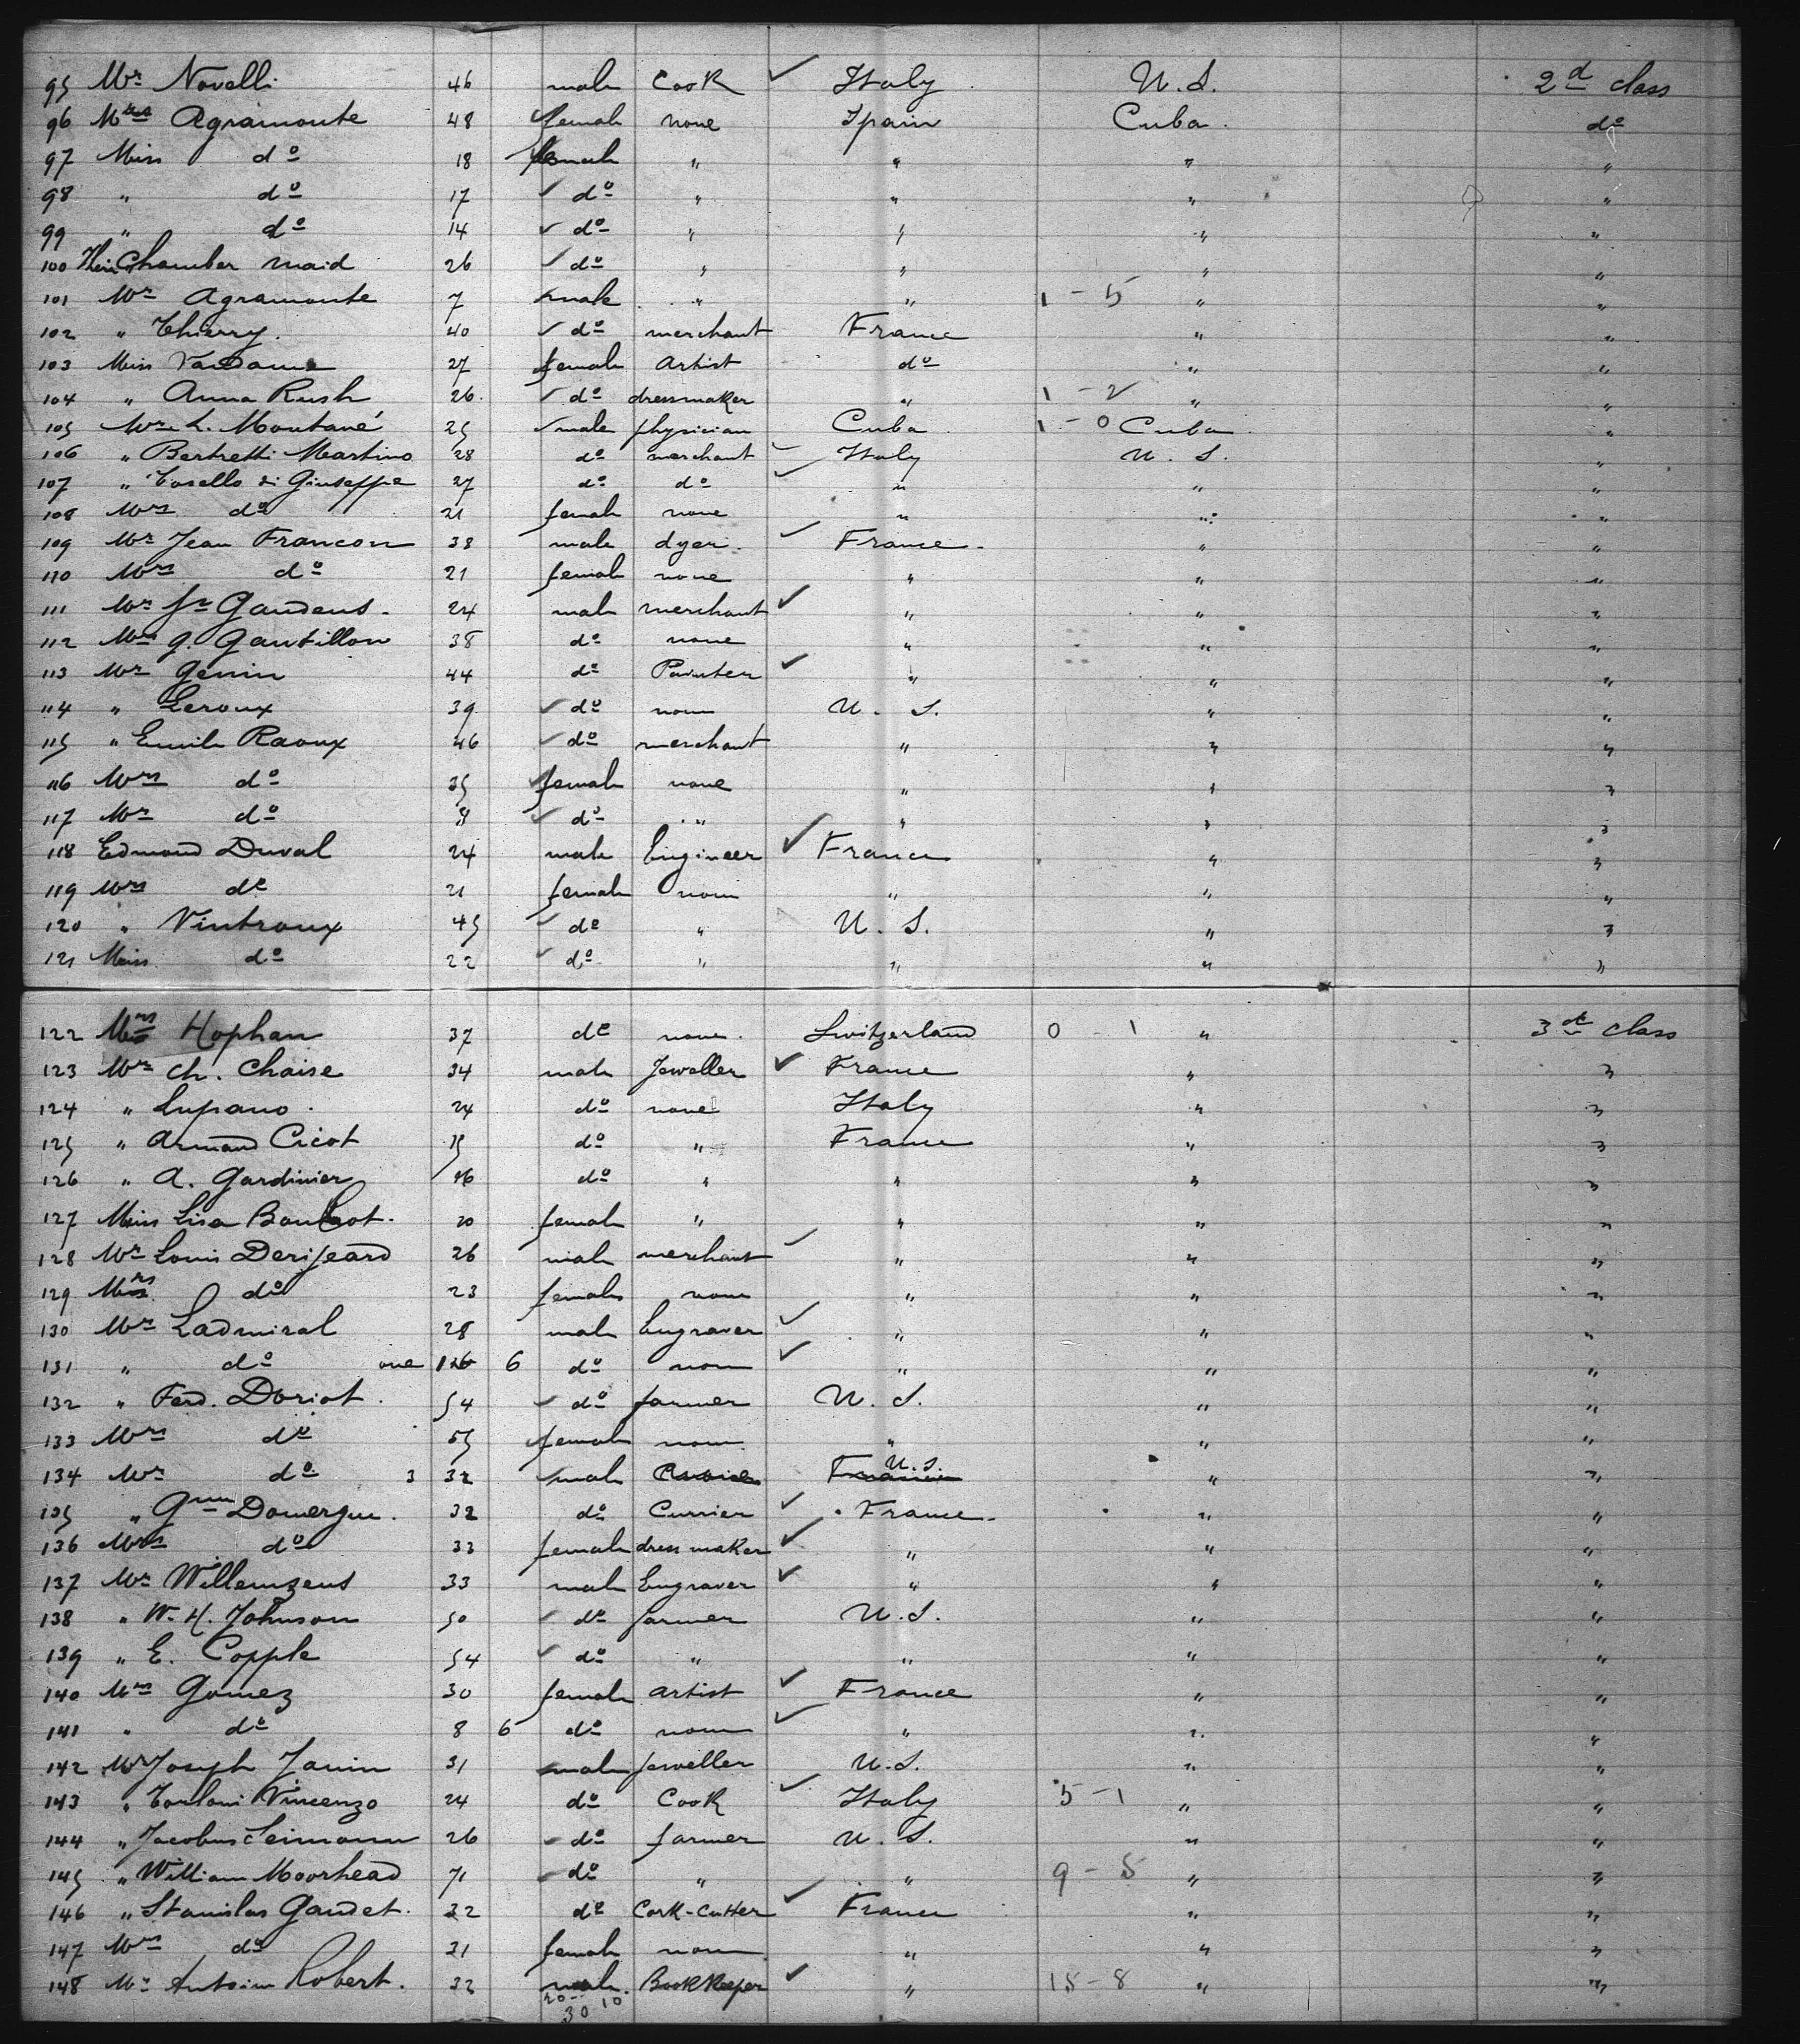 95 Mr Novelli 46 male Cook ✓ Italy U.S. 2d class
96 Mrs Agramonte 48 ✓ female none Spain Cuba do
97 Miss do 18 ✓ female " " " "
98 " do 17 ✓ do " " " "
99 " do 14 ✓ do " " " "
100 Their Chamber maid 26 ✓ do " " " "
101 Mr Agramonte 7 male " " 1 - 5 " "
102 " Thierry. 40 ✓ do merchant France " "
103 Miss Vandame 27 female artist do " "
104 " Anna Rush 26. ✓ do dressmaker " 1 - 2 " "
105 Mr. L. Montané 25 ✓ male physician Cuba 1 - 0 Cuba "
106 " Bertretti Martino 28 do merchant ✓ Italy U. S. "
107 " Cosello di Giuseppe 27 do do ✓ " " "
108 Mrs do 21 female none " " "
109 Mr Jean Francon 38 male dyer. ✓ France. " "
110 Mrs do 21 female none " " "
111 Mr Jr Gaudens. 24 male merchant ✓ " " "
112 G. Gautillon 38 do none " " "
113 Mr Genin 44 do Painter ✓ " " "
114 " Leroux 39 ✓ do none U. S. " "
115 " Emile Raoux 46 ✓ do merchant " " "
116 Mrs do 35 ✓ female none " " "
117 Mr do 8 ✓ do " " " "
118 Edmond Duval 24 male Engineer ✓ France " "
119 Mrs do 21 female none " " "
120 " Vintroux 45 ✓ do " U. S. " "
121 Miss do 22 ✓ do " " " "
122 Mrs Hophan 37 do none. Switzerland 0 - 1 " 3d class
123 Mr Ch. Chaise 34 male Jeweller ✓ France " "
124 " Lupano. 24 do none Italy " "
125 " Armand Cicot do " France " "
126 " A. Gardinier 46 do " " " "
127 Miss Lisa 20 female " " " "
128 Mr Louis Derijeard 26 male merchant ✓ " " "
129 Mrs do 23 female none " " "
130 Mr Ladmiral 28 male Engraver ✓ " " "
131 " do one 6 do none ✓ " " "
132 " Ferd. Doriot. 54 ✓ do farmer U. S. " "
133 Mrs do 55 female none " " "
134 Mr do 3 32 ✓ male U.S. " "
135 " Gme Domergue. 32 do Currier ✓ France. " "
136 Mrs do 33 female dress maker ✓ " " "
137 Mr Willemzens 33 male Engraver ✓ " " "
138 " W. H. Johnson 50 ✓ do farmer U.S. " "
139 " E. Copple 54 ✓ do " " " "
140 Mrs Gomez 30 female artist ✓ France " "
141 " do 8 6 do none ✓ " " "
142 Mr Joseph Janin 31 male jeweller U.S. " "
143 " Torloni Vincenzo 24 do Cook ✓ Italy 5 - 1 " "
144 " Jacobus Seimann 26 ✓ do farmer U. S. " "
145 " William Moorhead 71 ✓ do " " 9 - 5 " "
146 " Stanislas Gaudet. 32 do Cork-Cutter ✓ France " "
147 Mrs do 31 female none " " "
148 Mr Antoine Robert. 32 male. BookKeeper ✓ " 15 - 8 " "
20 10
30